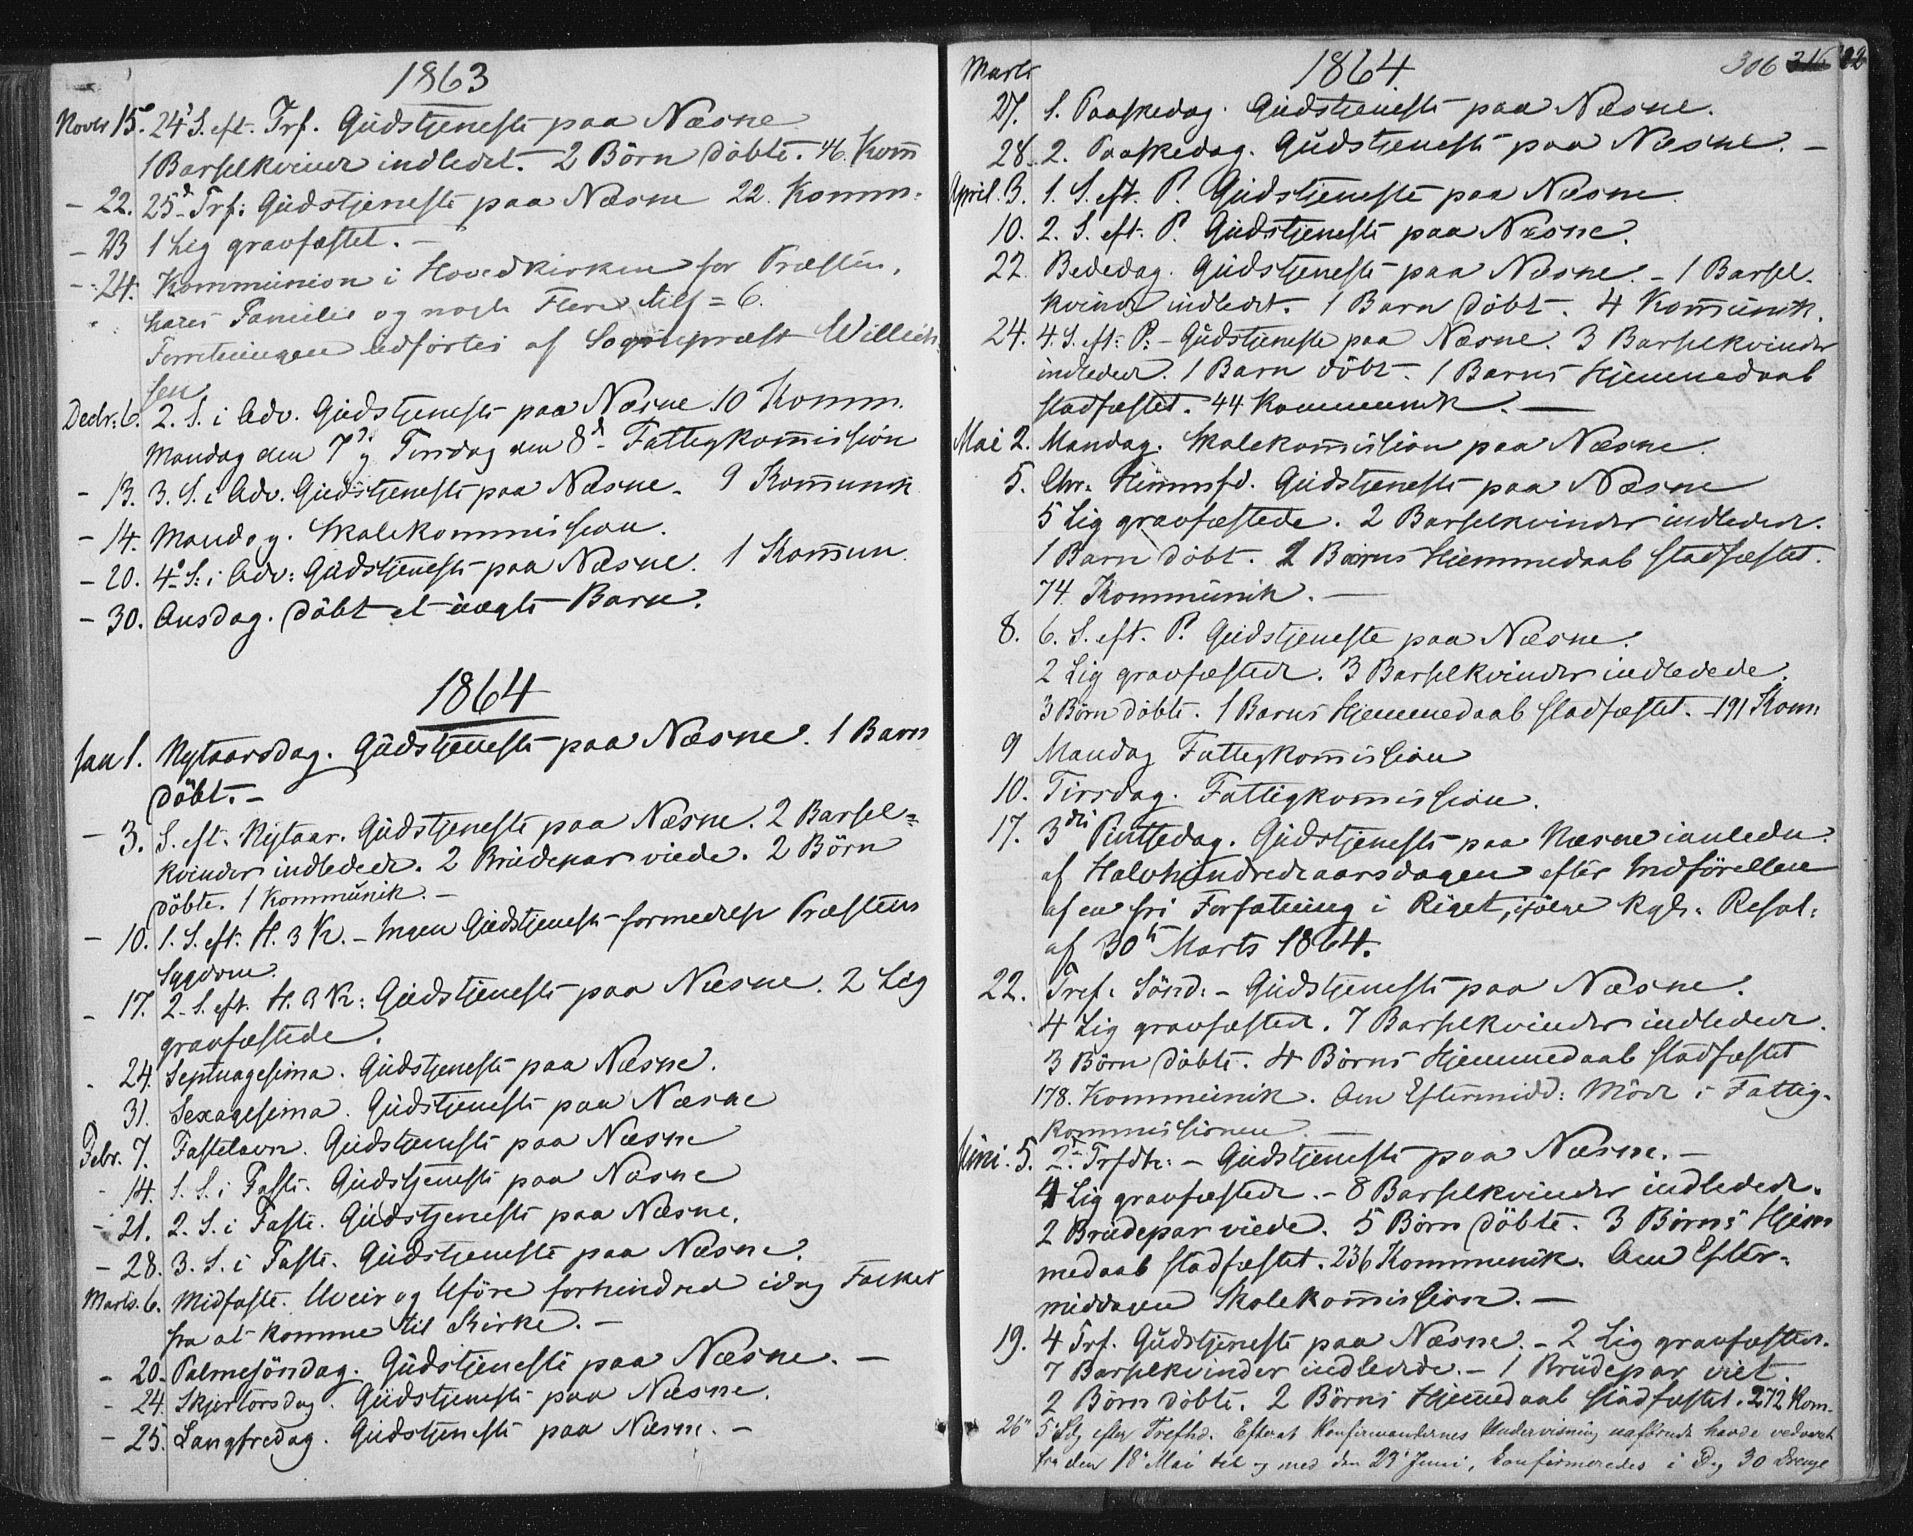 1863
Novbr 15. 24' S. eft. Trf. Gudstjeneste paa Næsne
1 Barselkvinde indledet. 2 Börn döbte. 46. Kom̅
- 22. 25d Trf: Gudstjeneste paa Næsne 22. Komm:
- 23 1 Lig gravfæstet. -
- 24. Kommunion i Hovedkirken for Præsten,
hans Familie og nogle Flere tils = 6.
Forretningen udförtes af Sognepræst Willich
sen
Decbr: 6. 2. S. i Adv. Gudstjeneste paa Næsne 10 Komm.
Mandag den 7d og Tirsdag den 8d Fattigkom̅ission
- 13. 3. S. i Adv. Gudstjeneste paa Næsne. 9 Kom̅unik
- 14. Mandag. Skolekommission.
- 20. 4. S: i Adv: Gudstjeneste paa Næsne. 1 Kom̅un.
- 30. Onsdag. döbt et uægte Barn.
1864
Jan 1. Nytaarsdag. Gudstjeneste paa Næsne. 1 Barn
döbt. -
- 3. S. eft. Nytaar. Gudstjeneste paa Næsne. 2 Barsel=
kvinder indledede. 2 Brudepar viede. 2 Börn
döbte. 1 Kommunik. -
- 10. 1. S. eft. H. 3 K. - Ingen Gudstjeneste formedelst Præstens
Sygdom.
- 17. 2. S. eft. H. 3 K: Gudstjeneste paa Næsne. 2 Lig
gravfæstede.
- 24. Septuagesima. Gudstjeneste paa Næsne.
31. Sexagesima. Gudstjeneste paa Næsne
Febr. 7. Fastelavn. Gudstjeneste paa Næsne
- 14. 1. S. i Faste. Gudstjeneste paa Næsne
- 21. 2. S. i Faste. Gudstjeneste paa Næsne.
- 28. 3. S. i Faste. Gudstjeneste paa Næsne.
Marts. 6. Midfaste. Uveir og Uföre forhindred idag Folket
fra at komme til Kirke. -
- 20. Palmesöndag. Gudstjeneste paa Næsne. -
- 24. Skjertorsdag. Gudstjeneste paa Næsne.
- 25. Langfredag. Gudstjeneste paa Næsne. -
Marts 1864. 306 316
27. 1. Paaskedag. Gudstjeneste paa Næsne.
28. 2. Paaskedag. Gudstjeneste paa Næsne. -
April. 3. 1. S. eft. P. Gudstjeneste paa Næsne.
10. 2. S. eft. P. Gudstjeneste paa Næsne.
22. Bededag. Gudstjeneste paa Næsne. - 1 Barsel-
kvinde indledet. 1 Barn döbt. 4 Kom̅unik.
24. 4. S. eft: P: - Gudstjeneste paa Næsne. 3 Barselkvinder
indledede. 1 Barn döbt. 1 Barns Hjemmedaab
stadfæstet. 44 Kommunik. -
Mai 2. Mandag. Skolekom̅ission paa Næsne.
5. Chr. Himmfd. Gudstjeneste paa Næsne
5 Lig gravfæstede. 2 Barselkvinder indledede.
1 Barn döbt. 2 Börns Hjemmedaab stadfæstet.
74 Kommunik. -
8. 6. S. eft. P. Gudstjeneste paa Næsne.
2 Lig gravfæstede. 3 Barselkvinder indledede.
3 Börn döbte. 1 Barns Hjemmedaab stadfæstet. - 191 Kom̅
9 Mandag Fattigkom̅ission
10. Tirsdag. Fattigkom̅ission.
17. 3die Pintsedag. Gudstjeneste paa Næsne i anledn.
af Halvhundredeaarsdagen efter Indförelsen
af en fri Forfatning i Riget, ifölge kgl. Resol:
af 30te Marts 1864.
22. Tref. Sönd. - Gudstjeneste paa Næsne.
4 Lig gravfæstede. 7 Barselkvinder indledede.
3 Börn döbte. 4 Börns Hjemmedaab stadfæstet
178. Kommunik. Om Eftermidd: Möde i Fattig-
kommissionen. -
Juni. 5. 2. Trfdh: - Gudstjeneste paa Næsne. -
4 Lig gravfæstede. - 8 Barselkvinder indledede.
2 Brudepar viede. 5 Börn döbte. 3 Börns Hjem
medaab stadfæstet. 236 Kommunik. Om Efter-
middagen Skolekom̅ission. -
19. 4 Trf. Gudstjeneste paa Næsne. - 2 Lig gravfæstede.
7 Barselkvinder indledede. - 1 Brudepar viet.
2 Börn döbte. 2 Börns Hjem̅edaab stadfæstet. 272 Kom.
26" 5 Sdg efter Trefhd. Efterat Konfirmandernes Undervisning uafbrudt havde vedvaret
fra den 18' Mai til og med den 23' Juni, konfirmeredes i Dg 30 Drenge